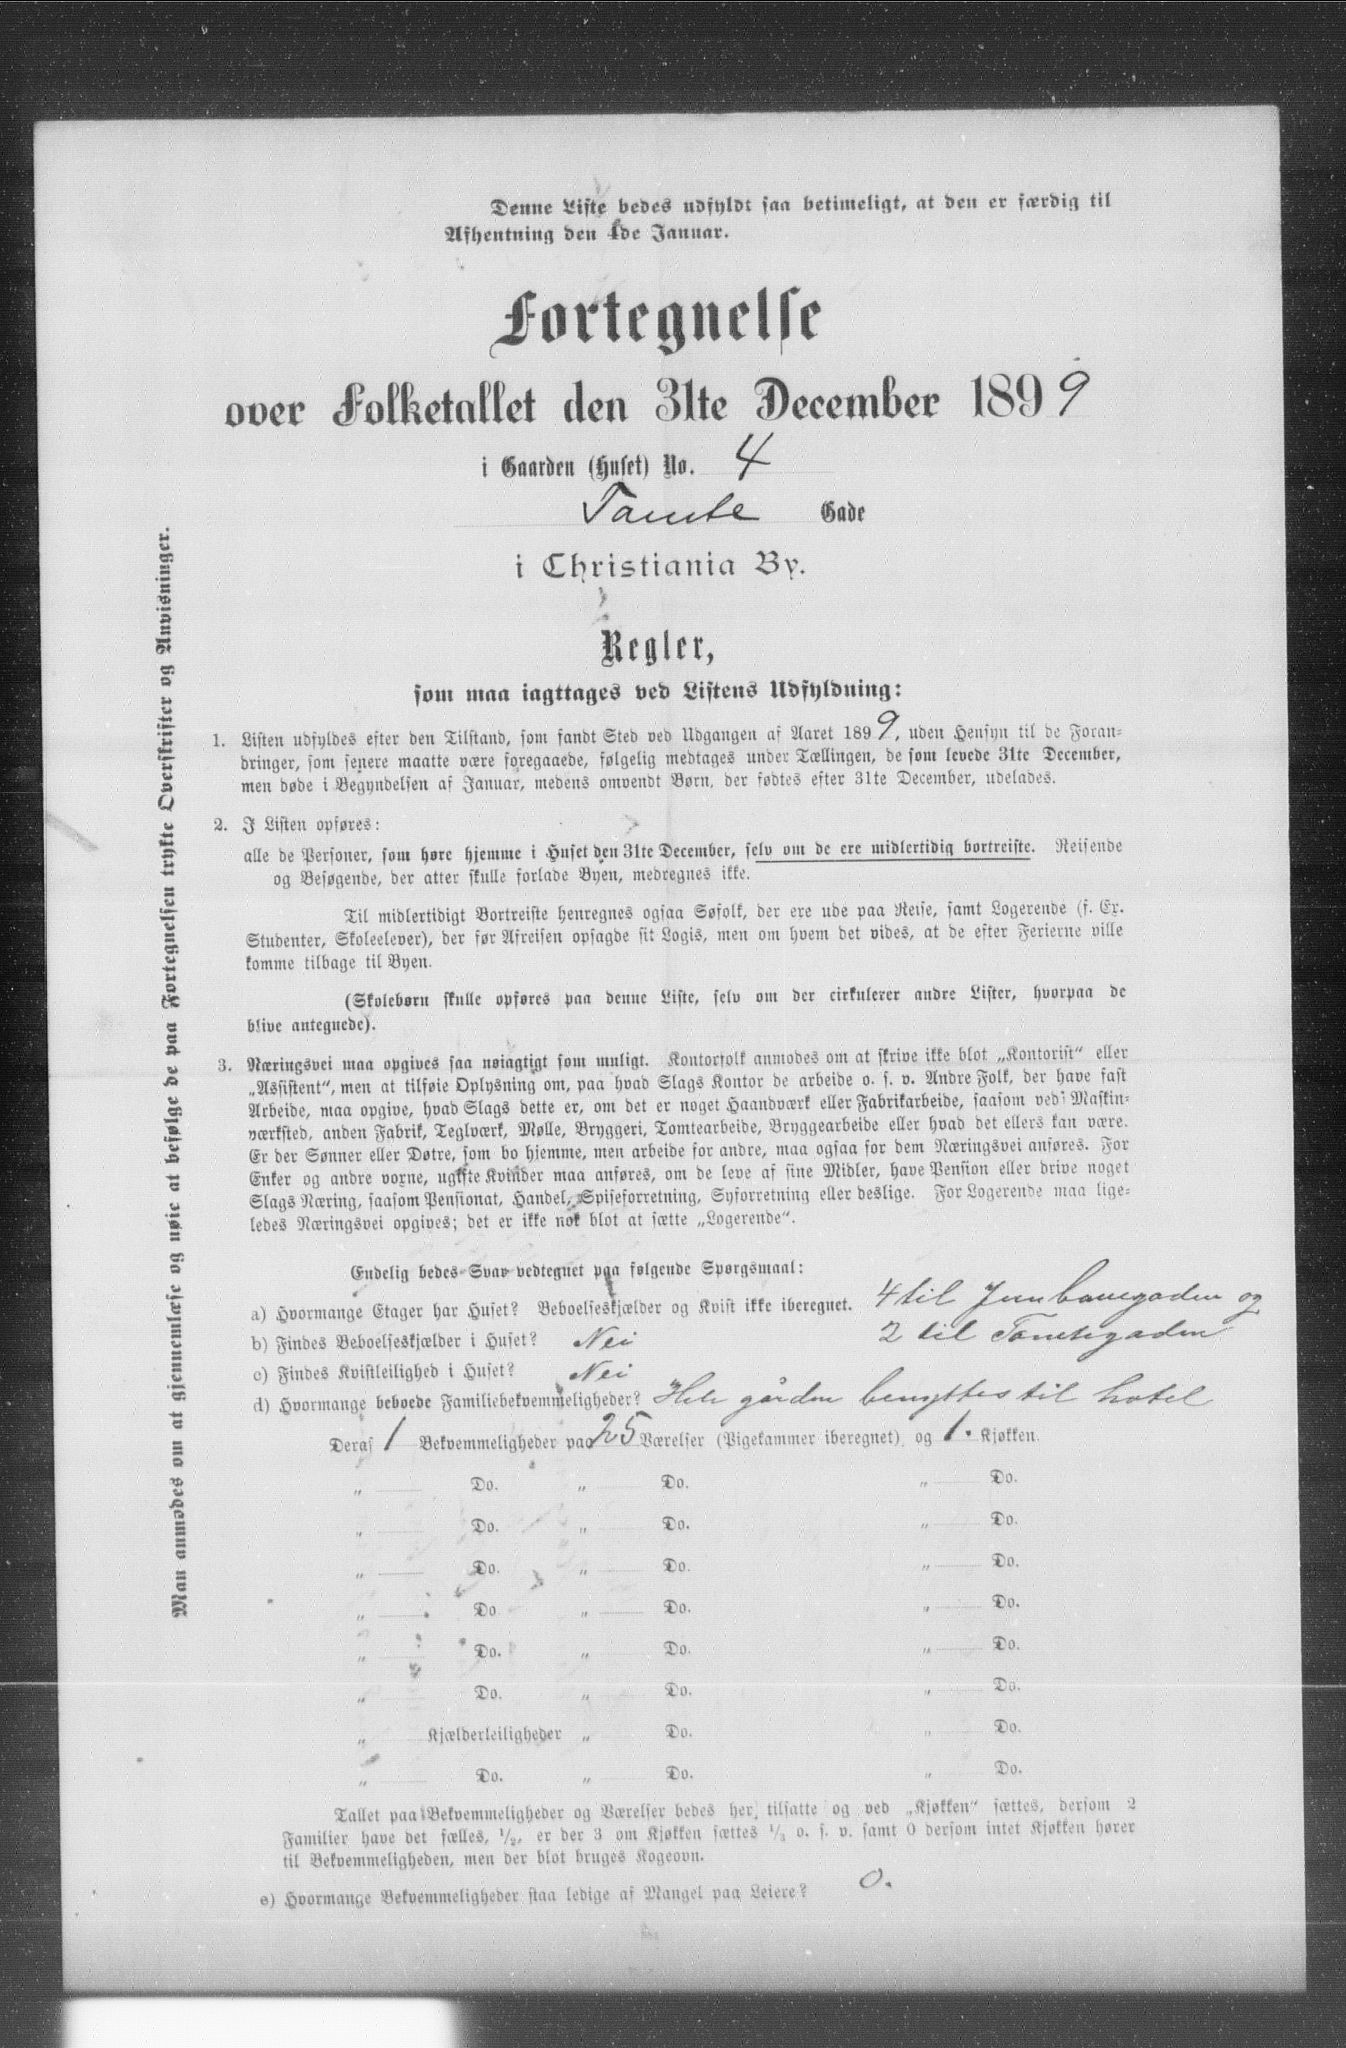 Denne Liste bedes udfyldt saa betimeligt, at den er færdig til
Afhentning den 4de Januar.
Fortegnelse
over Folketallet den 31te December 1899
i Gaarden (Huset) No. 4
Tomte Gade
i Christiania By.
Regler,
som maa iagttages ved Listens Udfyldning:
1. Listen udfyldes efter den Tilstand, som fandt Sted ved Udgangen af Aaret 1899, uden Hensyn til de Foran-
dringer, som senere maatte være foregaaede, følgelig medtages under Tællingen, de som levede 31te December,
men døde i Begyndelsen af Januar, medens omvendt Børn, der fødtes efter 31te December, udelades.
2. I Listen opføres:
alle de Personer, som høre hjemme i Huset den 31te December, selv om de ere midlertidig bortreiste. Reisende
og Besøgende, der atter skulle forlade Byen, medregnes ikke.
Til midlertidigt Bortreiste henregnes ogsaa Søfolk, der ere ude paa Reise, samt Logerende (f. Ex.
Studenter, Skoleelever), der før Afreisen opsagde sit Logis, men om hvem det vides, at de efter Ferierne ville
komme tilbage til Byen.
(Skolebørn skulle opføres paa denne Liste, selv om der cirkulerer andre Lister, hvorpaa de
blive antegnede).
3. Næringsvei maa opgives saa nøiagtigt som muligt. Kontorfolk anmodes om at skrive ikke blot „Kontorist“ eller
„Assistent“, men at tilføie Oplysning om, paa hvad Slags Kontor de arbeide o. s. v. Andre Folk, der have fast
Arbeide, maa opgive, hvad Slags dette er, om det er noget Haandværk eller Fabrikarbeide, saasom ved Maskin-
værksted, anden Fabrik, Teglværk, Mølle, Bryggeri, Tomtearbeide, Bryggearbeide eller hvad det ellers kan være.
Er der Sønner eller Døtre, som bo hjemme, men arbeide for andre, maa ogsaa for dem Næringsvei anføres. For
Enker og andre voxne, ugifte Kvinder maa anføres, om de leve af sine Midler, have Pension eller drive noget
Slags Næring, saasom Pensionat, Handel, Spiseforretning, Syforretning eller deslige. For Logerende maa lige-
ledes Næringsvei opgives; det er ikke nok blot at sætte „Logerende“.
Endelig bedes Svar vedtegnet paa følgende Spørgsmaal:
a) Hvormange Etager har Huset? Beboelseskjælder og Kvist ikke iberegnet. 4 til Jernbanegaden og
b) Findes Beboelseskjælder i Huset? Nei 2 til Tomtegaden
c) Findes Kvistleilighed i Huset? Nei
d) Hvormange beboede Familiebekvemmeligheder? Hele gården benyttes til hotel
Deraf 1 Bekvemmeligheder paa 25 Værelser (Pigekammer iberegnet) og 1. Kjøkken.
„ Do. „ Do. „ Do.
„ Do. „ Do. „ Do.
„ Do. „ Do. „ Do.
„ Do. „ Do. „ Do.
„ Do. „ Do. „ Do.
„ Do. „ Do. „ Do.
„ Kjælderleiligheder „ Do. „ Do.
„ Do. „ Do. „ Do.
Tallet paa Bekvemmeligheder og Værelser bedes her tilsatte og ved „Kjøkken“ sættes, dersom 2
Familier have det fælles, 1/2, er der 3 om Kjøkken sættes 1/3 o. s. v. samt 0 dersom intet Kjøkken hører
til Bekvemmeligheden, men der blot bruges Kogeovn.
e) Hvormange Bekvemmeligheder staa ledige af Mangel paa Leiere? 0.
Man anmodes om at gjennemlæse og nøie at befølge de paa Fortegnelsen trykte Overskrifter og Anvisninger.